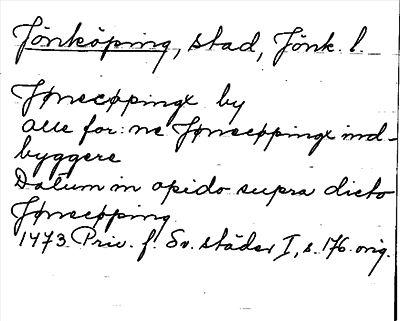 Jönköping, stad, Jönk. l.
Jønecøppinge by
alle for:ne Jønecøppinge ind-
byggere
Datum in opido supra dicto
Jønecøpping
1473 Priv. f. Sv. städer I, s. 176. orig.